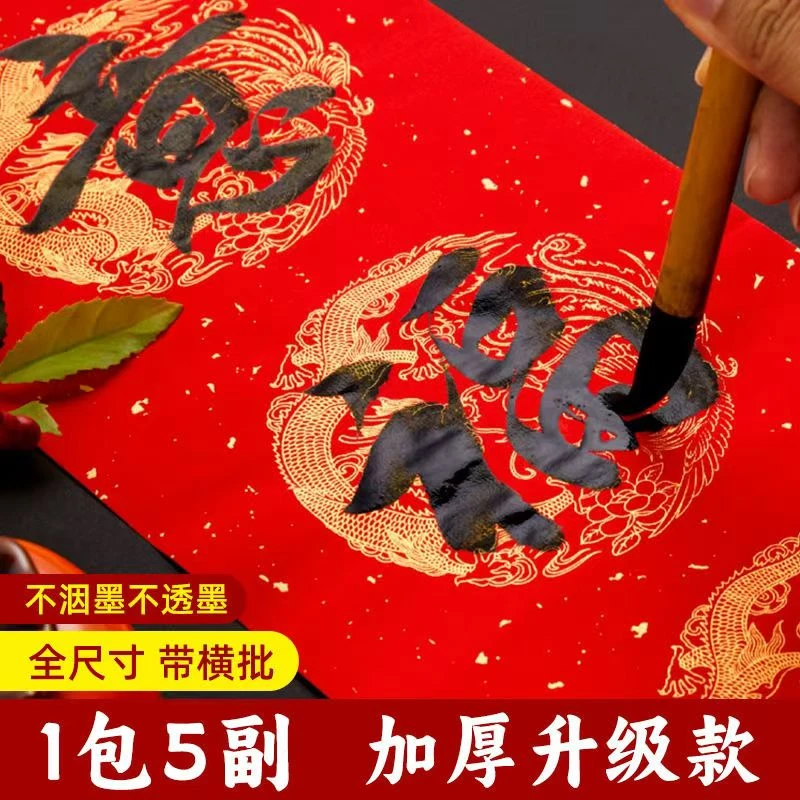 福
不洇墨不透墨
全尺寸 带横批
1包5副 加厚升级款